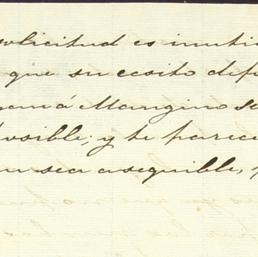 solicitud es inuti
que su cosito dif
á Mangino s
usible; y te parece
sea asequible,